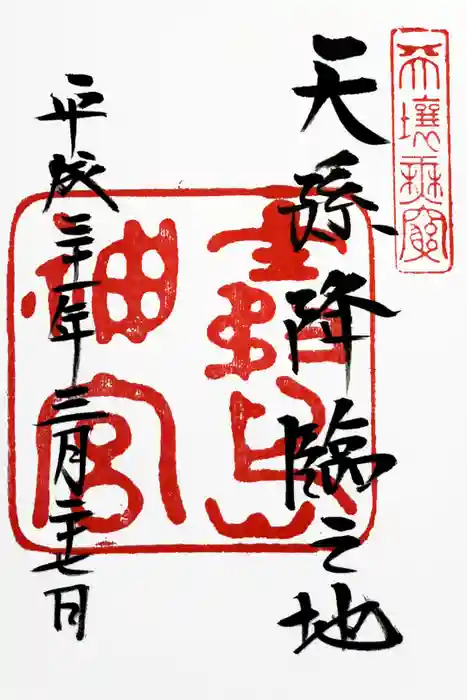 天壤無窮
天孫降臨之地
霧島
神宮
平成三十一年三月二十七日